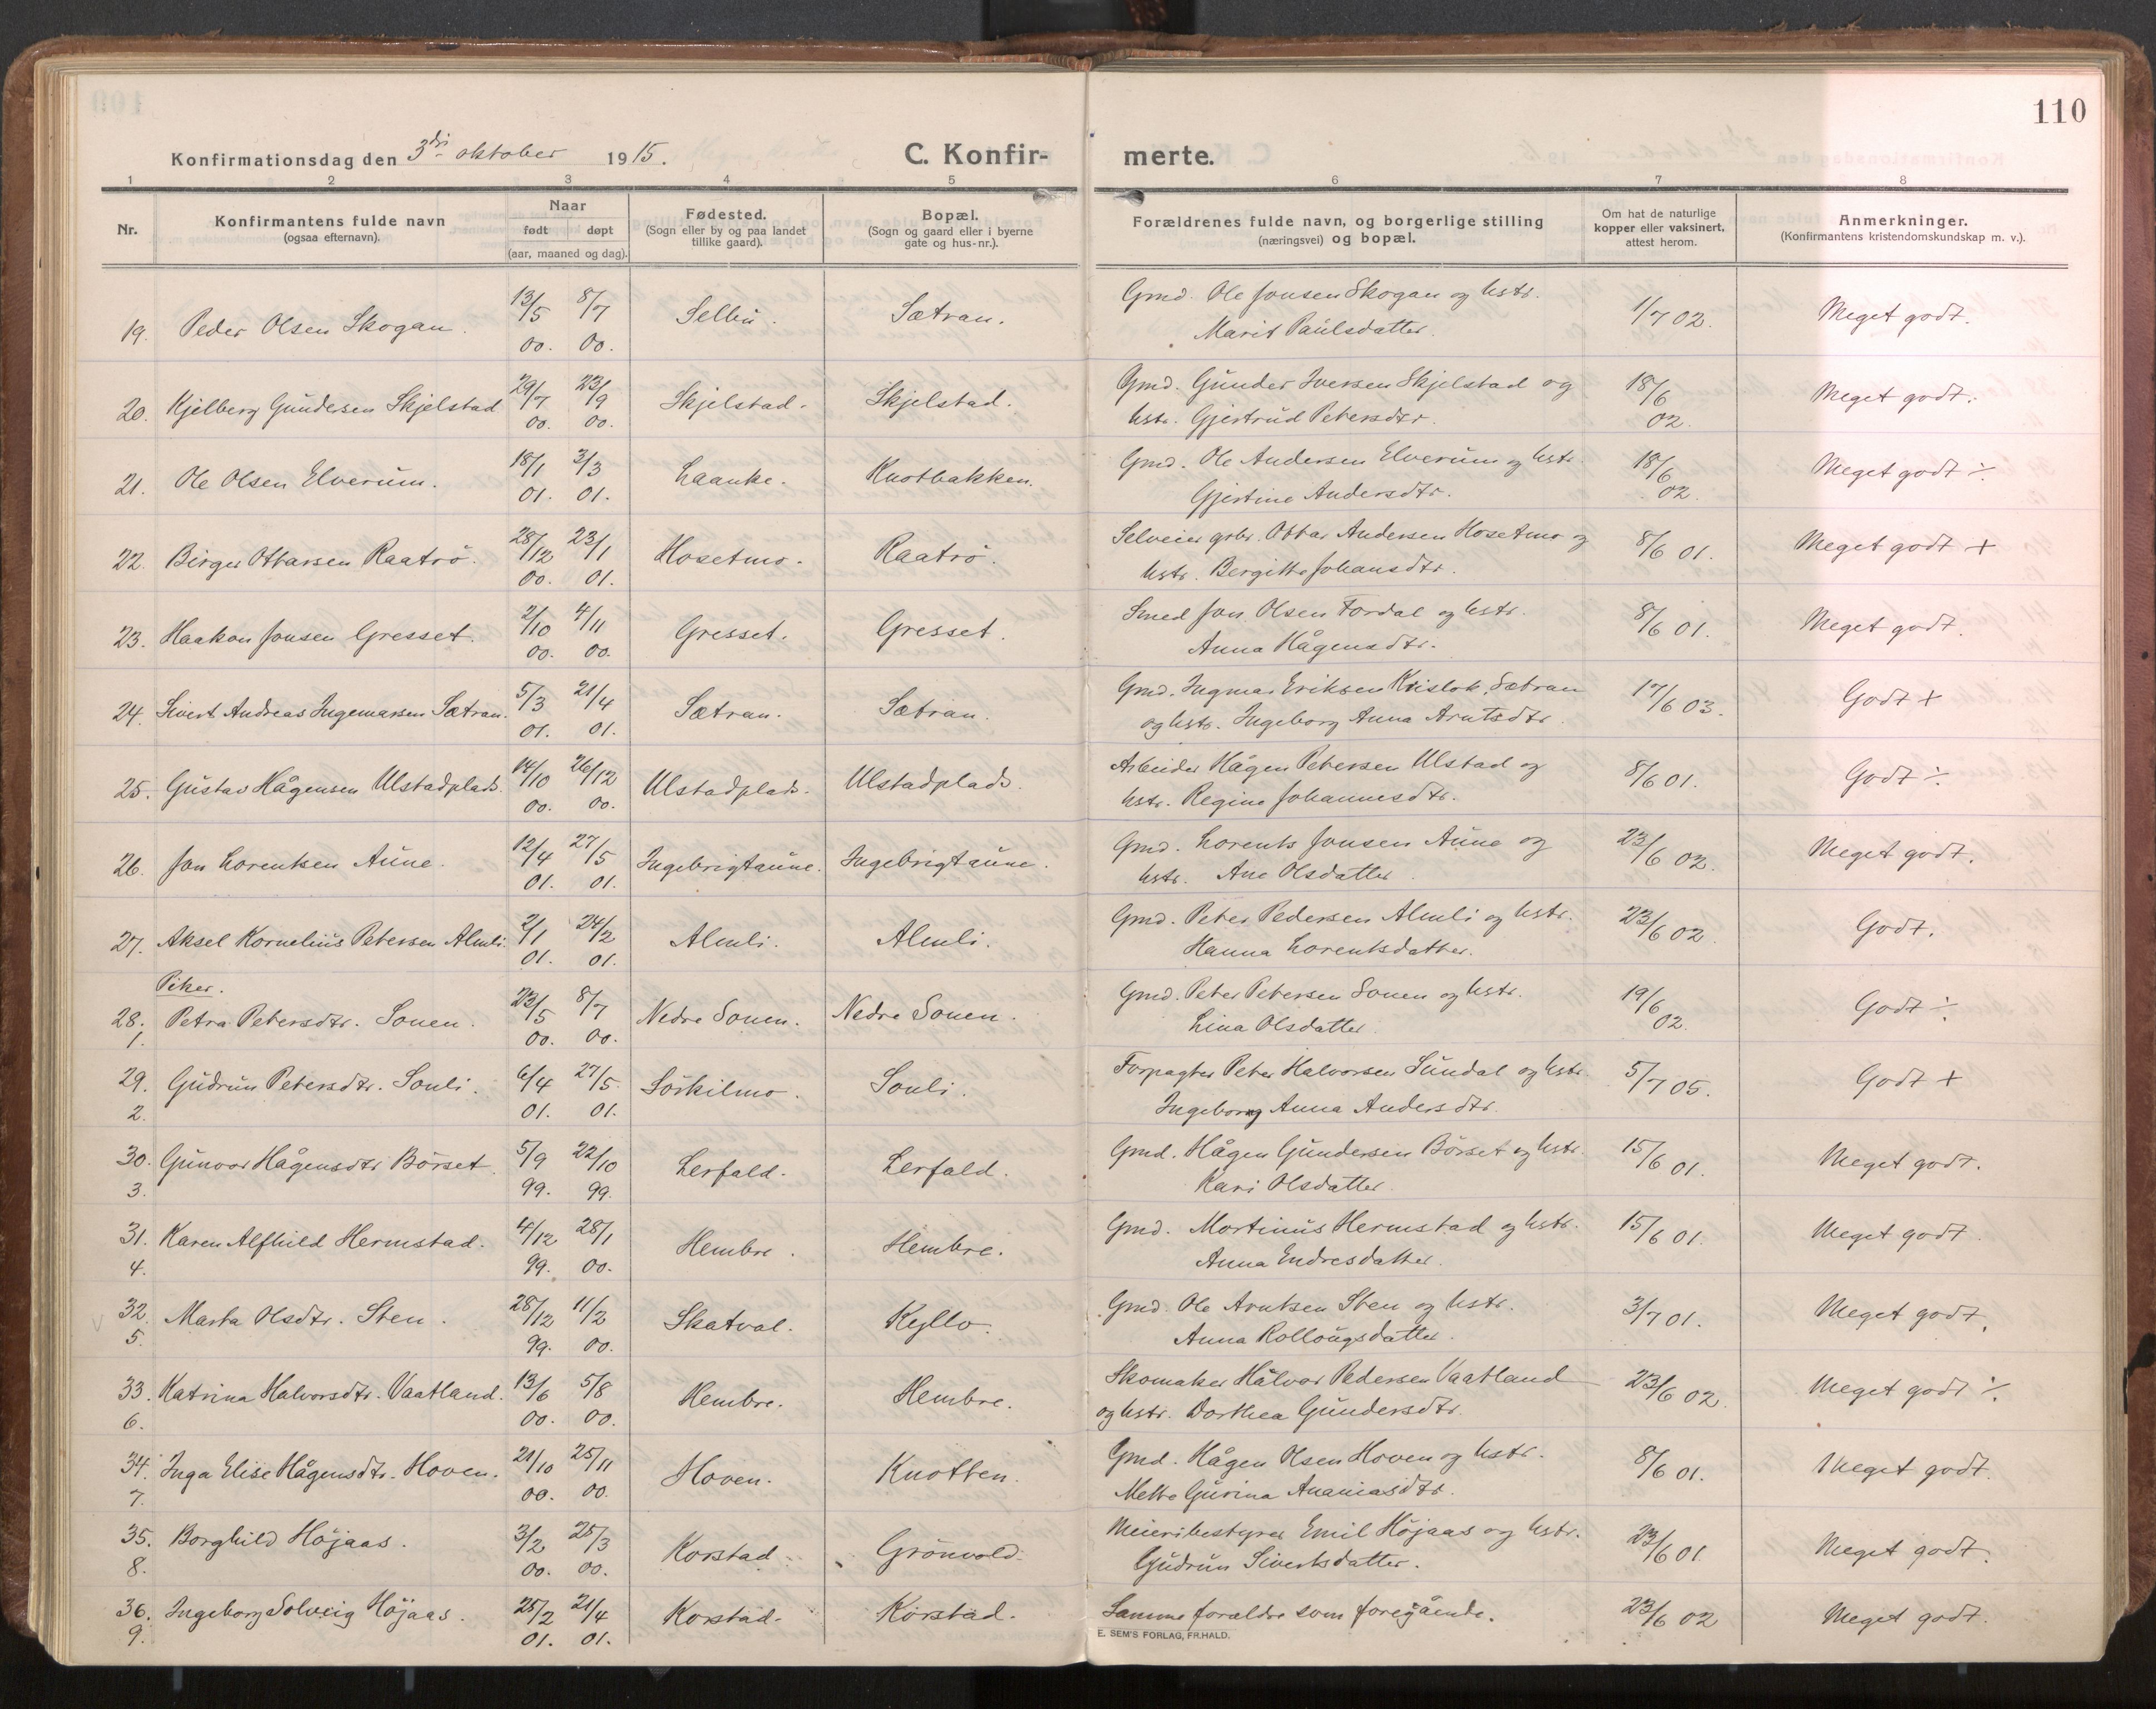 110
Konfirmationsdag den 3die oktober 1915.
C. Konfir-
merte.
1 2 3 4 5 6 7 8
Nr.
Konfirmantens fulde navn
(ogsaa efternavn).
Naar
født døpt
(aar, maaned og dag).
Fødested.
(Sogn eller by og paa landet
tillike gaard).
Bopæl.
(Sogn og gaard eller i byerne
gate og hus-nr.).
Forældrenes fulde navn, og borgerlige stilling
(næringsvei) og bopæl.
Om hat de naturlige
kopper eller vaksinert,
attest herom.
Anmerkninger.
(Konfirmantens kristendomskundskap m. v.).
19. Peder Olsen Skogan. 13/5 00. 8/7 00. Selbu. Sætran. Gmd. Ole Jonsen Skogan og hstr.
Marit Paulsdatter. 1/7 02. Meget godt.
20. Kjelberg Gundesen Skjelstad 29/7 00. 23/9 00. Skjelstad. Skjelstad. Gmd. Gunder Iversen Skjelstad og
hstr. Gjertrud Petersdtr. 18/6 02. Meget godt.
21. Ole Olsen Elverum. 18/1 01. 3/3 01. Laanke. Knotbakken. Gmd. Ole Andersen Elverum og hstr.
Gjertine Andersdtr. 18/6 02. Meget godt ÷
22. Birger Ottarsen Raatrö. 28/12 00. 23/1 01. Hosetmo. Raatrö. Selveier grbr. Ottar Andersen Hosetmo og
hstr. Bergitte Johansdtr. 8/6 01. Meget godt +
23. Haakon Jonsen Gresset. 2/10 00. 4/11 00. Gresset. Gresset. Smed Jon Olsen Fordal og hstr.
Anna Hågensdtr. 8/6 01. Meget godt.
24. Sivert Andreas Ingemarsen Sætran. 5/3 01. 21/4 01. Sætran. Sætran. Gmd. Ingmar Eriksen Krislok, Sætran
og hstr. Ingeborg Anna Arntsdtr. 17/6 03. Godt +
25. Gustav Hågensen Ulstadplads. 14/10 00. 26/12 00. Ulstadplads. Ulstadplads. Arbeider Hågen Petersen Ulstad og
hstr. Regine Johannesdtr. 8/6 01. Godt ÷
26. Jon Lorentsen Aune. 12/4 01. 27/5 01. Ingebrigtaune. Ingebrigtaune. Gmd. Lorents Jonsen Aune og
hstr. Ane Olsdatter. 23/6 02. Meget godt.
27. Aksel Kornelius Petersen Almli. 2/1 01. 24/2 01. Almli. Almli. Gmd. Peter Pedersen Almli og hstr.
Hanna Lorentsdatter. 23/6 02. Godt.
Piker.
28. 1. Petra Petersdtr. Sonen. 23/5 00. 8/7 00. Nedre Sonen. Nedre Sonen. Gmd. Peter Petersen Sonen og hstr.
Lina Olsdatter. 19/6 02. Godt ÷
29. 2. Gudrun Petersdtr. Sonli. 6/4 01. 27/5. 01. Sörkilmo. Sonli. Forpagter Peter Halvorsen Sundal og hstr.
Ingeborg Anna Andersdtr. 5/7 05. Godt +
30. 3. Gunvor Hågensdtr. Börset. 5/9 99. 22/10 99. Lerfald. Lerfald. Gmd. Hågen Gundersen Börset og hstr.
Kari Olsdatter. 15/6 01. Meget godt.
31. 4. Karen Alfhild Hermstad. 4/12 99. 28/1 00. Hembre. Hembre. Gmd. Martinus Hermstad og hstr.
Anna Endresdatter. 15/6 01. Meget godt.
32. 5. Marta Olsdtr. Sten. 28/12 99. 11/2 00. Skatval. Kyllo. Gmd. Ole Arntsen Sten og hstr.
Anna Rollougsdatter. 3/7 01. Meget godt.
33. 6. Katrina Halvorsdtr. Vaatland. 13/6 00. 5/8 00. Hembre. Hembre. Skomaker Halvor Pedersen Vaatland
og hstr. Dorthea Gundersdtr. 23/6 02. Meget godt ÷
34. 7. Inga Elise Hågensdtr. Hoven. 21/10 00. 25/11 00. Hoven. Knotten. Gmd. Hågen Olsen Hoven og hstr.
Mette Gurina Ananiasdtr. 8/6 01. Meget godt.
35. 8. Borghild Höjaas. 3/2 00. 25/3 00. Korstad. Grönvold. Meieribestyrer Emil Höjaas og hstr.
Gudrun Sivertsdatter. 23/6 01. Meget godt.
36. 9. Ingeborg Solveig Höjaas. 25/2 01. 21/4 01. Korstad. Korstad. Samme forældre som foregående. 23/6 02 Meget godt.
E. SEM'S FORLAG, FR.HALD.